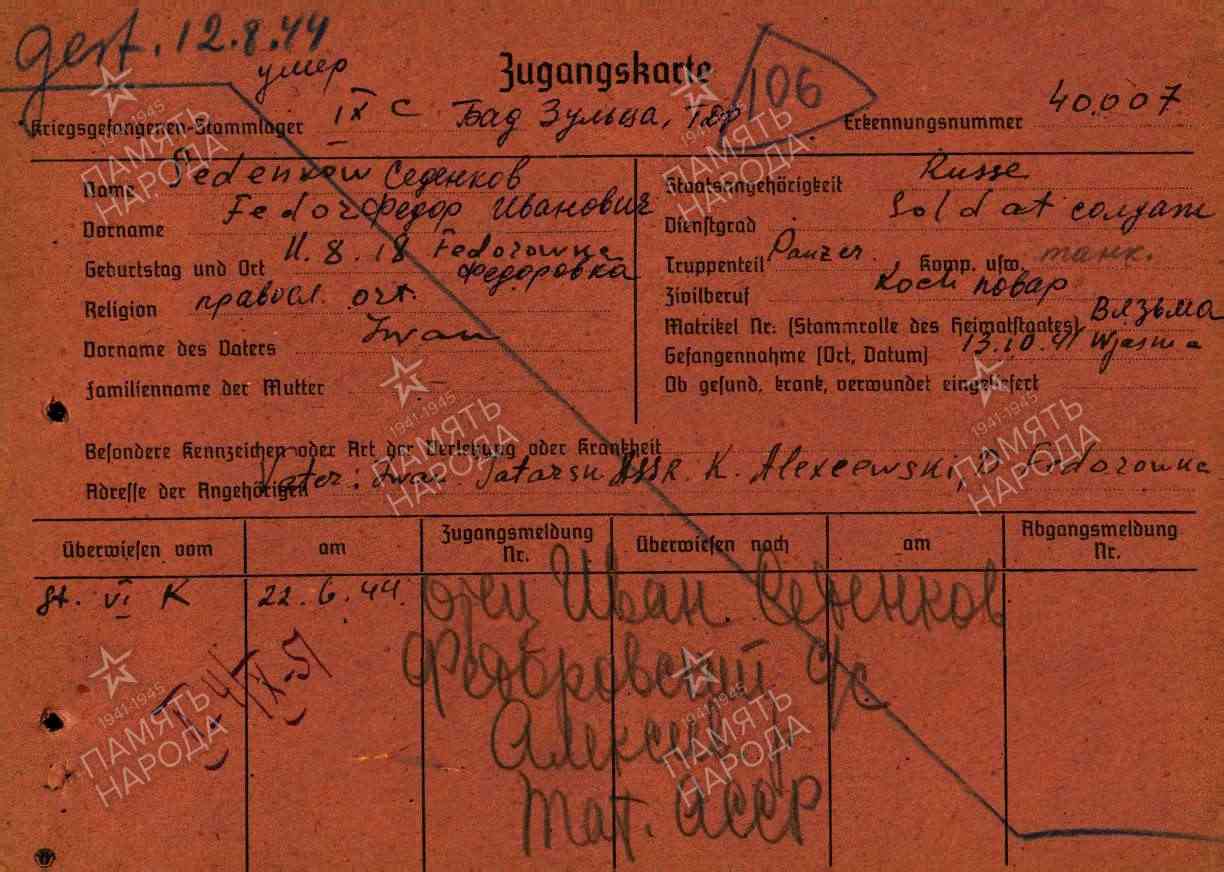 gest. 12.8.44
умер
Zugangskarte
106
Kriegsgefangenen-Stammlager IX C Бад Зульца, Тюр Erkennungsnummer 40007
Name Sedenkow Седенков
Vorname Fedor Федор Иванович
Geburtstag und Ort 11.8.18 Fedorowka
Федоровка
Religion правосл. ort.
Vorname des Vaters Iwan
Familienname der Mutter -
Staatsangehörigkeit Russe
Dienstgrad Soldat солдат
Truppenteil Panzer. Komp. usw. танк.
Zivilberuf Koch повар
Matrikel Nr. (Stammrolle des Heimatstaates) Вязьма
Gefangennahme (Ort, Datum) 13.10.41 Wjasma
Ob gesund, krank, verwundet eingeliefert
Besondere Kennzeichen oder Art der Verletzung oder Krankheit
Adresse der Angehörigen Vater: Iwan Tatarsk ASSR. K. Alexeewski, D. Fedorowka
Überwiesen vom am Zugangsmeldung Nr. Überwiesen nach am Abgangsmeldung Nr.
St. VI K 22.6.44.
отец Иван Седенков
Федоровский с/с
Алексеев.
Тат. АССР
1941-1945
ПАМЯТЬ
НАРОДА
1941-1945
ПАМЯТЬ
НАРОДА
1941-1945
ПАМЯТЬ
НАРОДА
1941-1945
ПАМЯТЬ
НАРОДА
1941-1945
ПАМЯТЬ
НАРОДА
1941-1945
ПАМЯТЬ
НАРОДА